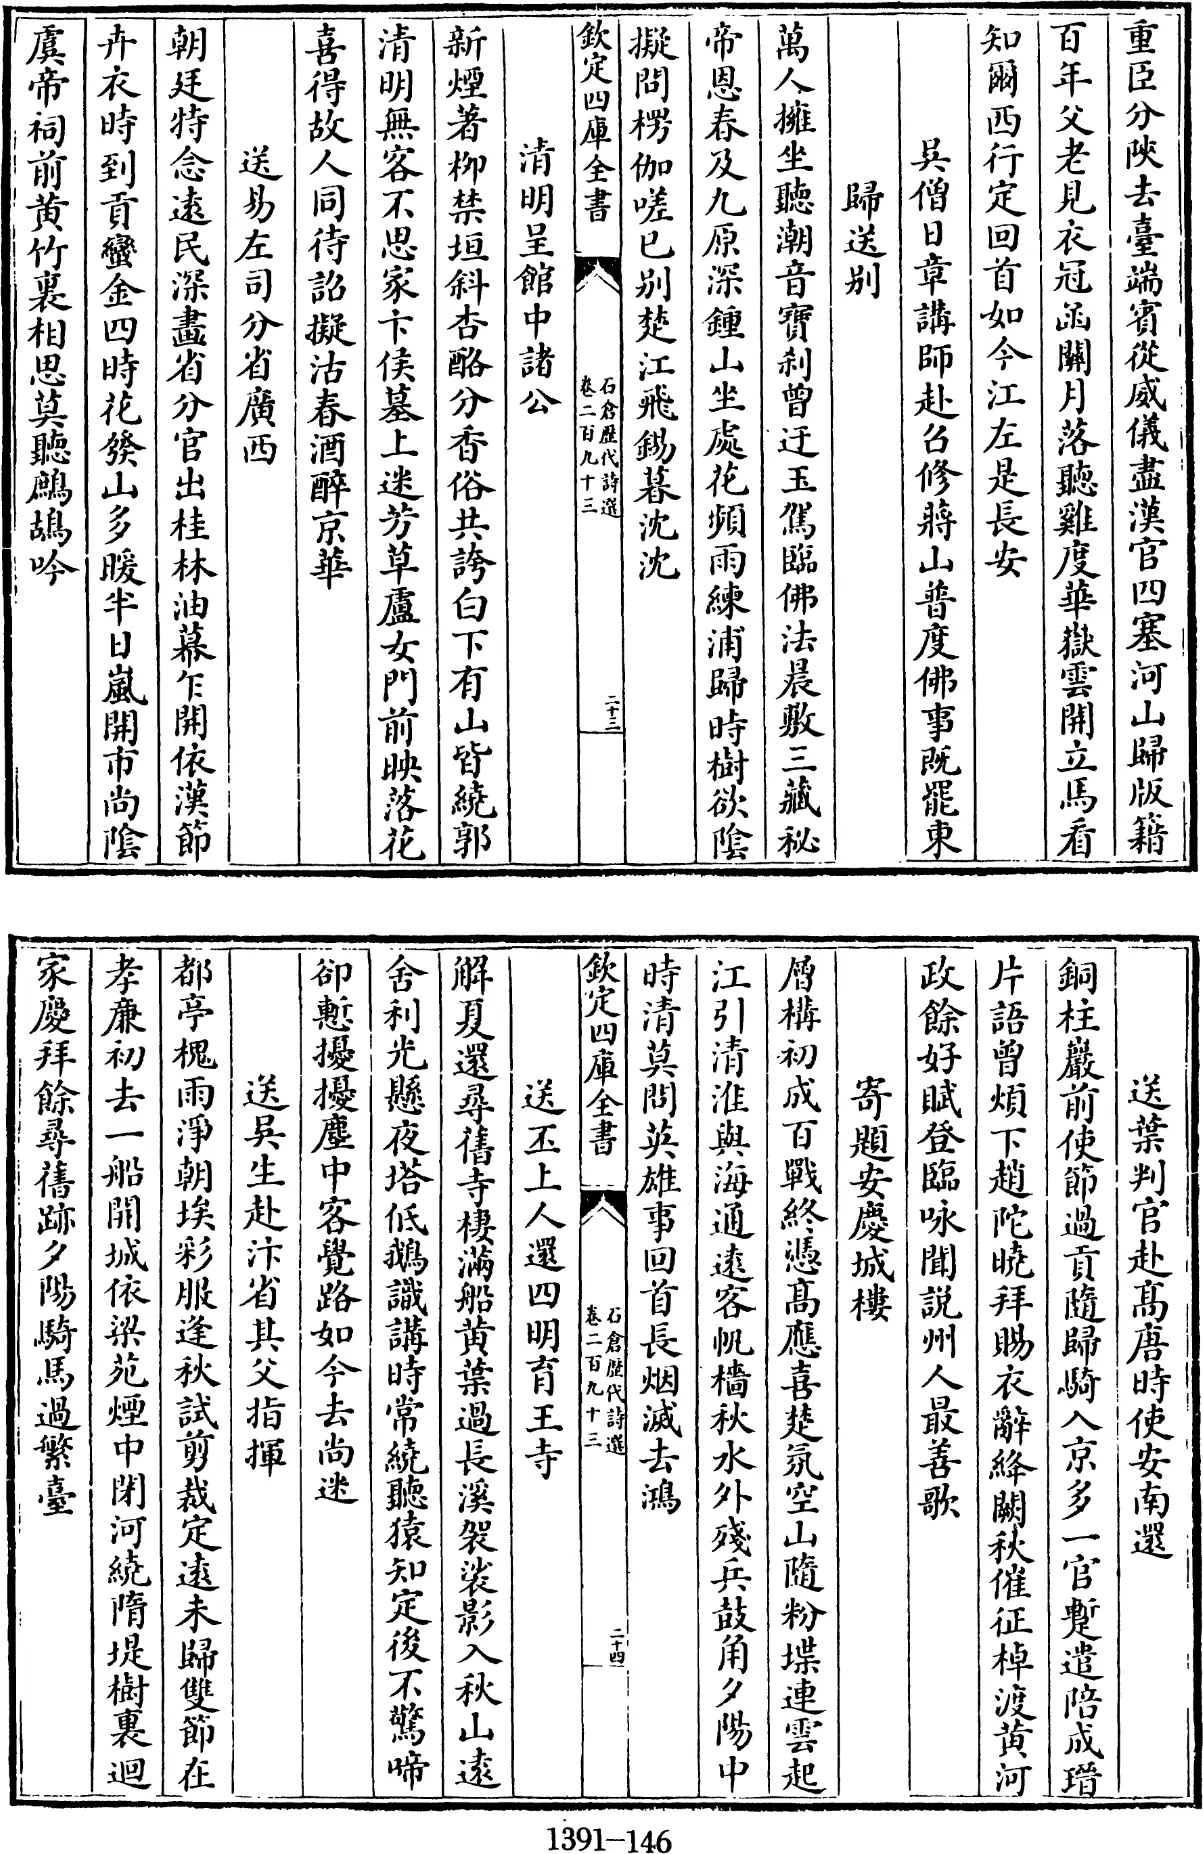 重臣分陜去臺端賓從威儀盡漢官四塞河山歸版籍
百年父老見衣冠函關月落聽雞度華嶽雲開立馬看
知爾西行定回首如今江左是長安
吳僧日章講師赴召修蔣山普度佛事既罷東
歸送别
萬人擁坐聽潮音寶刹曾迂玉駕臨佛法晨敷三藏秘
帝恩春及九原深鍾山坐處花頻雨練浦歸時樹欲陰
擬問楞伽嗟已别楚江飛錫暮沈沈
欽定四庫全書
石倉歷代詩選
卷二百九十三
二十三
清明呈館中諸公
新煙著柳禁垣斜杏酪分香俗共誇白下有山皆繞郭
清明無客不思家卞侯墓上迷芳草盧女門前映落花
喜得故人同待詔擬沽春酒醉京華
送易左司分省廣西
朝廷特念遠民深畫省分官出桂林油幕乍開依漢節
卉衣時到貢蠻金四時花發山多暖半日嵐開市尚陰
虞帝祠前黄竹裏相思莫聽鷓鴣吟
送葉判官赴髙唐時使安南還
銅柱巖前使節過貢隨歸騎入京多一官蹔遣陪成瑨
片語曾煩下趙陀曉拜賜衣辭絳闕秋催征棹渡黄河
政餘好賦登臨咏聞説州人最善歌
寄題安慶城樓
層構初成百戰終憑髙應喜楚氛空山隨粉堞連雲起
江引清淮與海通遠客帆檣秋水外殘兵鼓角夕陽中
時清莫問英雄事回首長烟滅去鴻
欽定四庫全書
石倉歷代詩選
卷二百九十三
二十四
送丕上人還四明育王寺
解夏還尋舊寺棲滿船黄葉過長溪袈裟影入秋山遠
舍利光懸夜塔低鵝識講時常繞聽猿知定後不驚啼
卻慙擾擾塵中客覺路如今去尚迷
送吳生赴汴省其父指揮
都亭槐雨淨朝埃彩服逢秋試剪裁定遠未歸雙節在
孝廉初去一船開城依梁苑煙中閉河繞隋堤樹裏迴
家慶拜餘尋舊跡夕陽騎馬過繁臺
1391-146